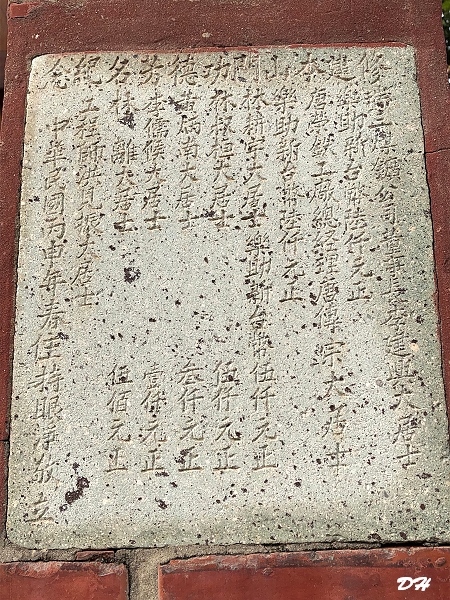 修建本山開功德芳名紀念
瑞三煤鑛公司董事長李建興大居士
樂助新台幣陸仟元正
唐榮鐵工廠總經理唐傳宗大居士
樂助新台幣陸仟元正
林耕宇大居士 樂助新台幣伍仟元正
孫大居士 伍仟元正
黃炳南大居士 叁仟元正
李儒侯大居士 壹仟元正
林離大居士 伍佰元正
工程師洪見振大居士
中華民國丙申年春住持眼淨敬立
DH